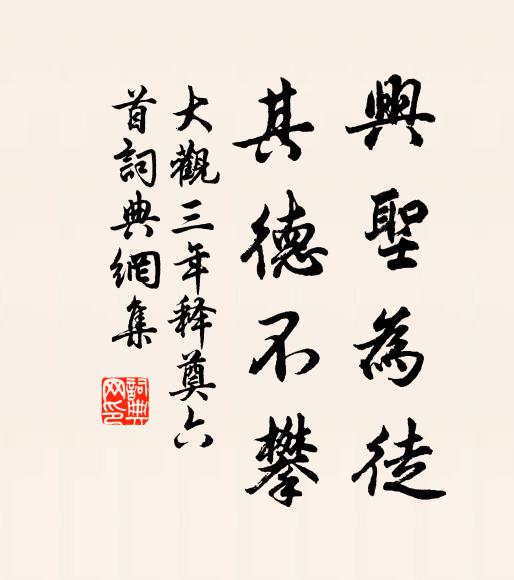 興聖為徒
其德不攀
大觀三年释奠六
首詞典網集
詞典網印